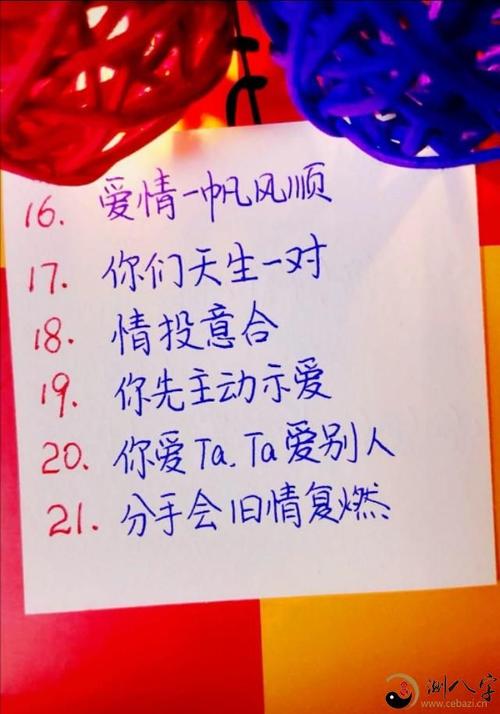 16. 爱情一帆风顺
17. 你们天生一对
18. 情投意合
19. 你先主动示爱
20. 你爱Ta.Ta爱别人
21. 分手会旧情复燃
测八字
www.cebazi.cn